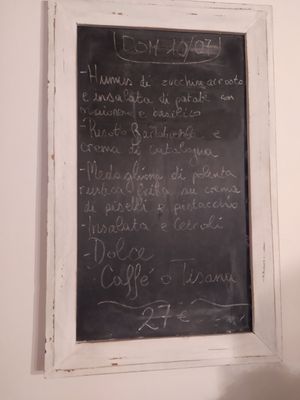 DOM 19/07
-Humus di zucchine arrosto
e insalata di patate con
maionese e basilico
-Risoto Barbabietola e
crema di catalogna
-Medaglione di polenta
rustica fritta su crema
di piselli e pistacchio
-Insalata e Cetrioli
-Dolce
-Caffé o Tisana
27 €